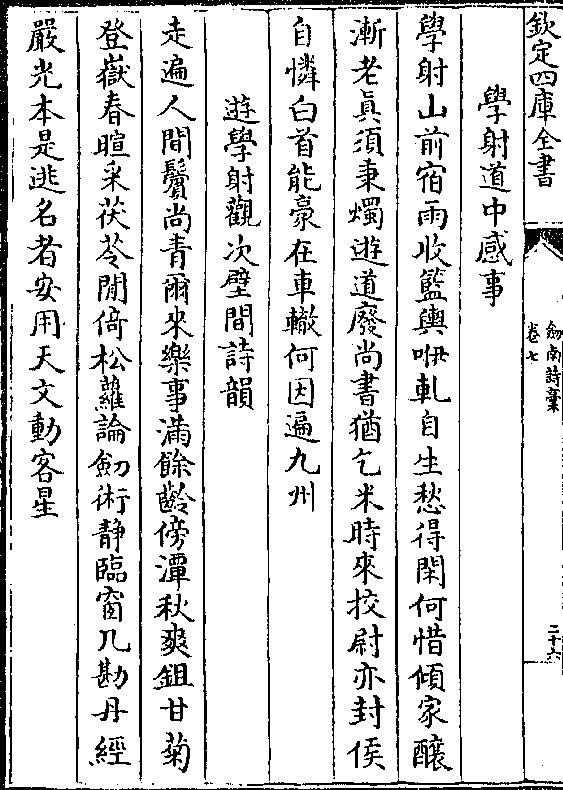 欽定四庫全書
劒南詩藁
卷七
二十六
學射道中感事
學射山前宿雨收籃輿咿軋自生愁得閑何惜傾家釀
漸老真須秉燭遊道廢尚書猶乞米時來挍尉亦封侯
自憐白首能豪在車轍何因遍九州
遊學射觀次壁間詩韻
走遍人間鬢尚青爾來樂事滿餘齡傍潭秋爽鉏甘菊
登嶽春暄采茯苓閒倚松蘿論劒術静臨窗几勘丹經
嚴光本是逃名者安用天文動客星